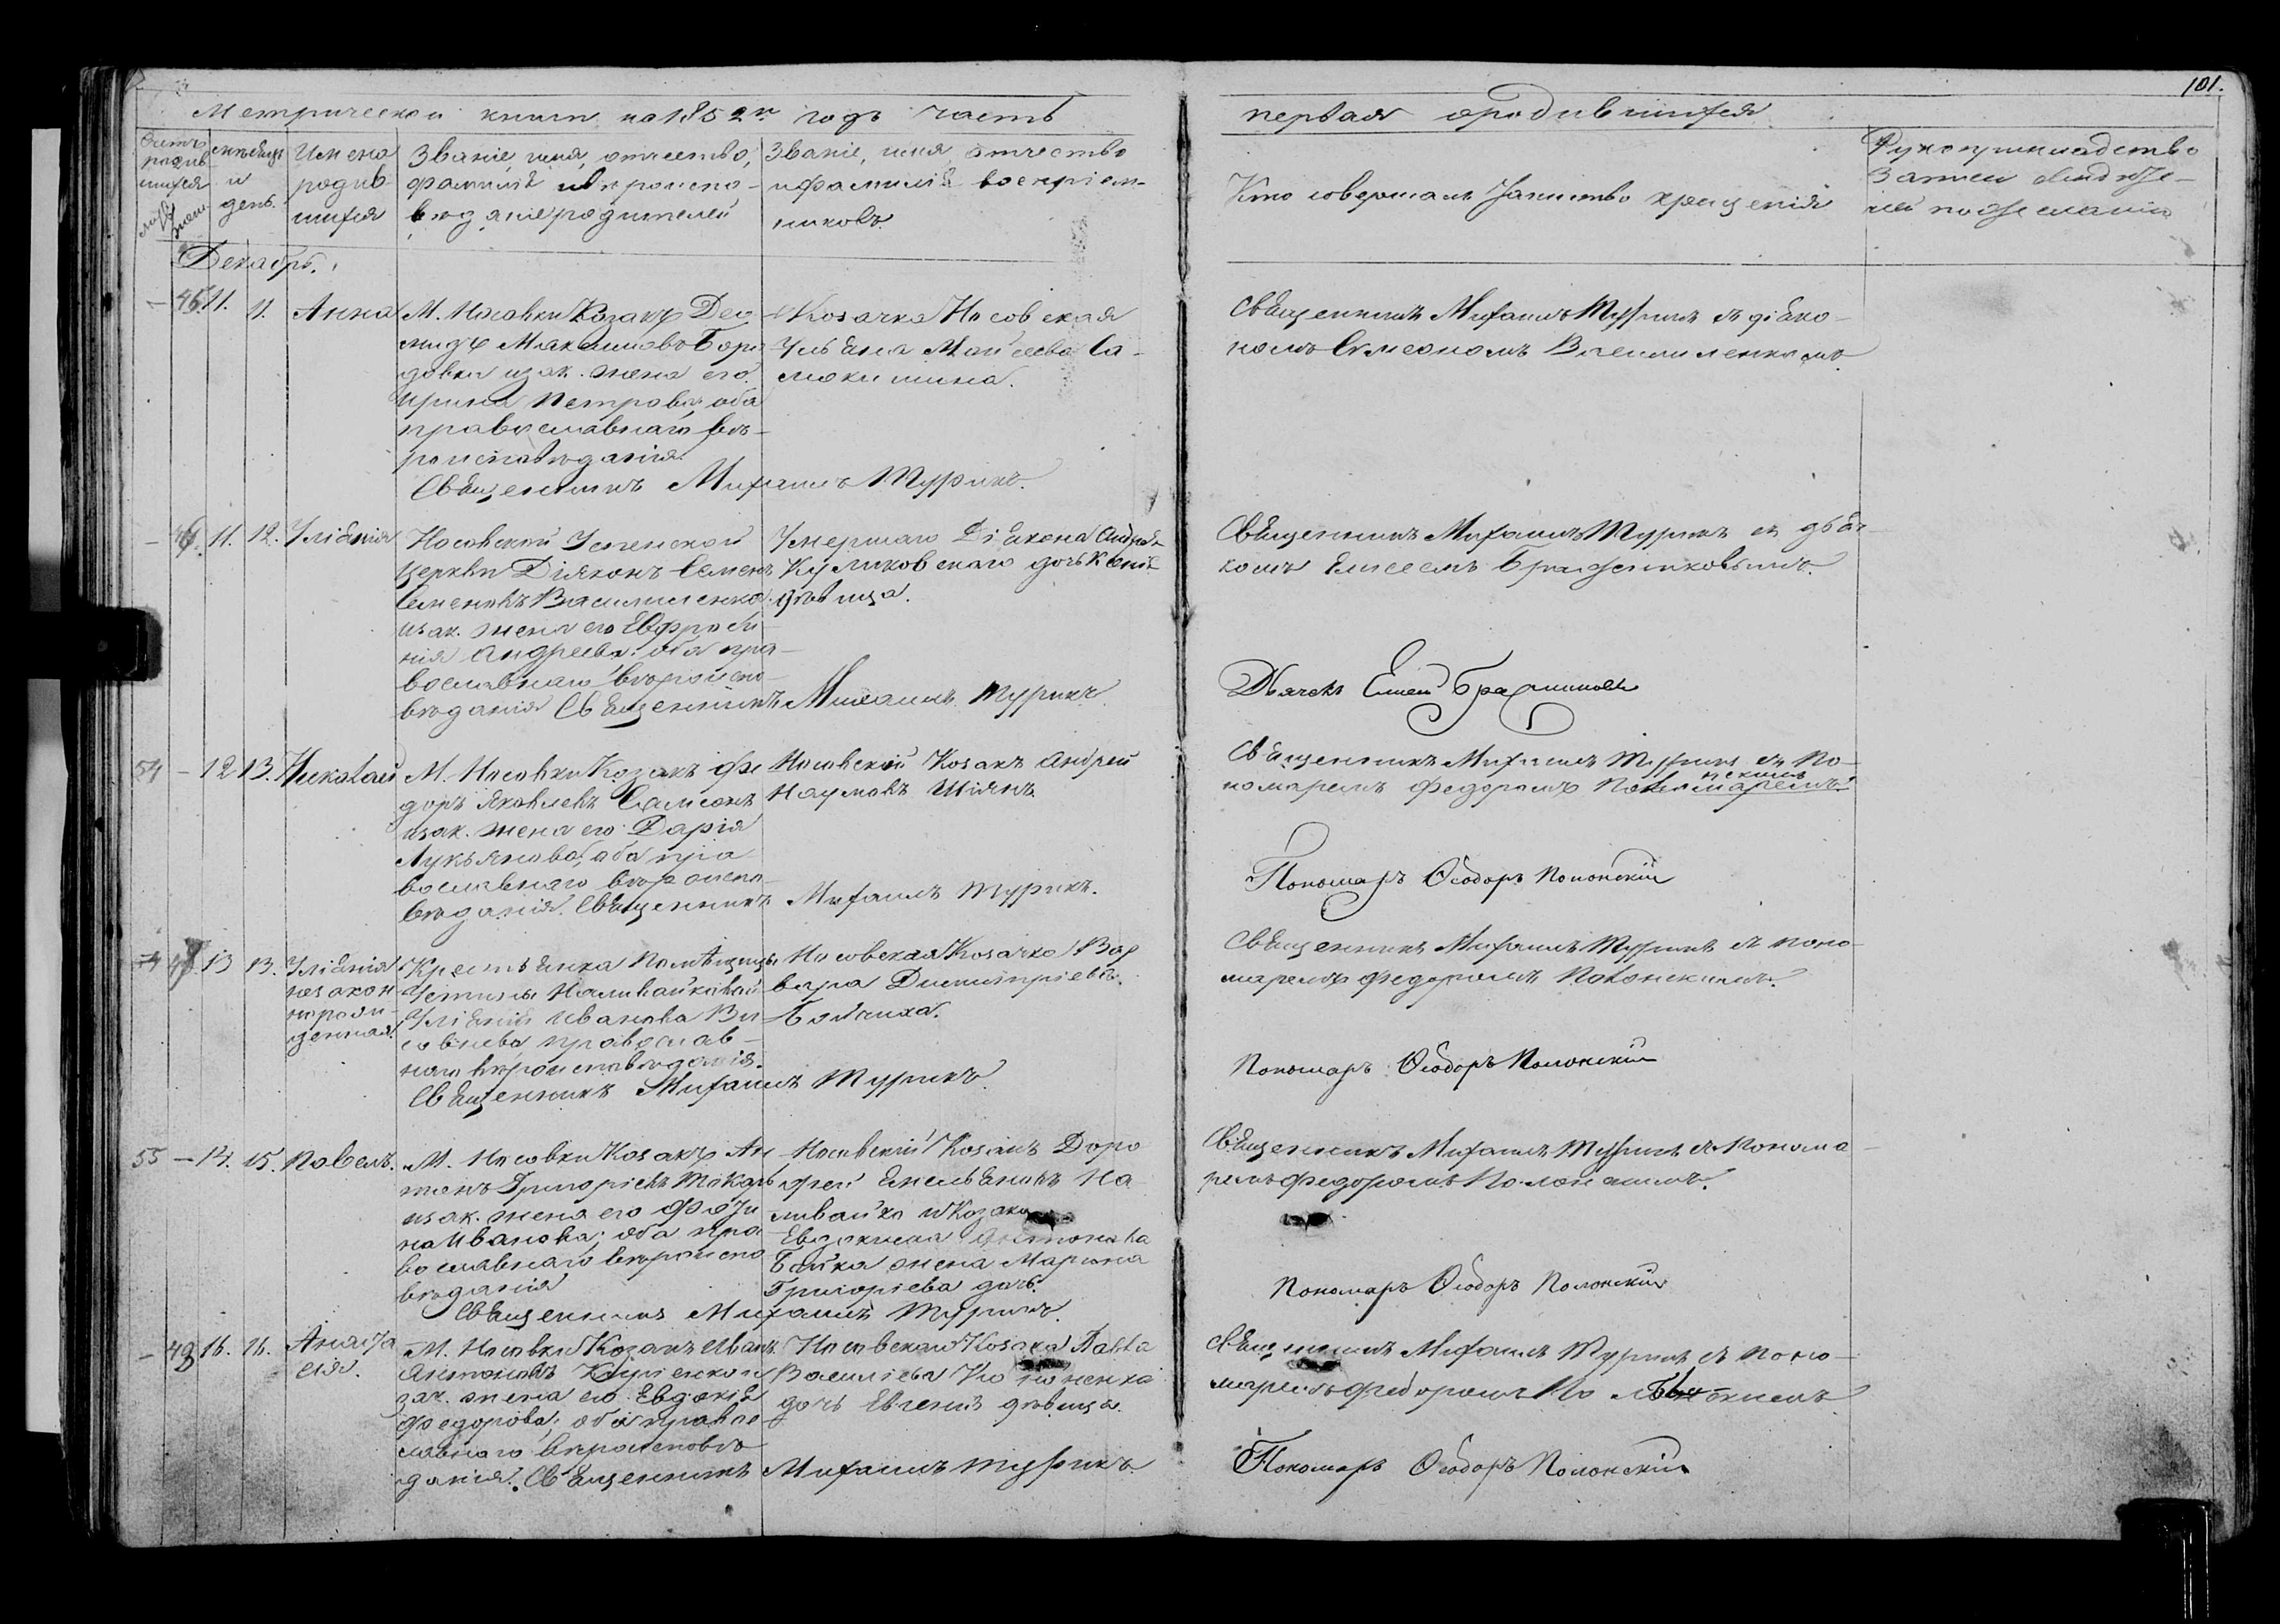 101.
Метрической книги на 1852й годъ часть
первая о родившихся
Счетъ родив-
шихся
муж. жен.
мѣсяцъ
и
день.
Имена
родив-
шихся
Званіе, имя, отчество,
фамилія и вѣроиспо-
вѣданіе родителей
Званіе, имя, отчество
и фамилія воспріем-
никовъ.
Кто совершалъ таинство крещенія
Рукоприкладство
Декабрь.
– 45. 11. 11. Анна
М. Носовки Козакъ Део
мидъ Максимовъ
и зак. жена его
Ирина Петрова, оба
православнаго вѣ-
роисповѣданія.
Священникъ Михаилъ Туррикъ.
Козачка Носовская
Ульяна
Священникъ Михаилъ Туррикъ съ діяко-
номъ Симеономъ Василиленкомъ
– 46. 11. 12. Уліянія
Носовской Успенской
Церкви Діяконъ Семенъ
Семеновъ Василиленко
и зак. жена его Евфроси-
нія Андреева; оба пра-
вославнаго вѣроиспо-
вѣданія Священникъ Михаилъ Туррикъ
Умершаго Діякона Андрея
Куликовскаго дочь Ксенія
дѣвица.
Священникъ Михаилъ Туррикъ съ дьяч-
комъ Елисеемъ Бражниковымъ.
Дьячекъ Елисей Бражниковъ
54 – 12 13. Николай
М. Носовки Козакъ Фе
доръ Яковлевъ Самсонъ
и зак. жена его Дарія
Лукьянова; оба пра
вославнаго вѣроиспо-
вѣданія. Священникъ Михаилъ Туррикъ.
Носовскій Козакъ Андрей
Наумовъ Шіянъ
Священникъ Михаилъ Туррикъ съ По-
номаремъ Федоромъ
Пономарь Ѳеодоръ Полонскій
47 13 13. Уліянія
незакон
норож-
денная
Крестьянка Помѣщицы
Наливайковой
Уліянія Иванова
православ-
наго вѣроисповѣданія.
Священникъ Михаилъ Туррикъ
Носовская Козачка Вар
вара Дмитріева
Бойчиха.
Священникъ Михаилъ Туррикъ съ поно-
маремъ Федоромъ Полонскимъ.
Пономарь Ѳеодоръ Полонскій
55 – 14. 15. Павелъ.
М. Носовки Козакъ Ан
тонъ Григоріевъ Токарь
и зак. жена его
на Иванова; оба пра-
вославнаго вѣроиспо
вѣданія
Священникъ Михаилъ Туррикъ.
Носовскій Козакъ Доро
фей Емельяновъ На
ливайко и Козака
Антонова
Бойка жена Марина
Григоріева дочь.
Священникъ Михаилъ Туррикъ съ Понома-
ремъ Федоромъ Полонскимъ.
Пономарь Ѳеодоръ Полонскій
– 48 16. 16. Анаста
сія.
М. Носовки Козакъ Иванъ
Антоновъ
зак. жена его Евдокія
Федорова; оба право
славнаго вѣроисповѣ
данія. Священникъ Михаилъ Туррикъ.
Носовскаго Козака Павла
Васильева
дочь Евгенія дѣвица.
Священникъ Михаилъ Туррикъ съ поно-
маремъ Федоромъ
Пономарь Ѳеодоръ Полонскій